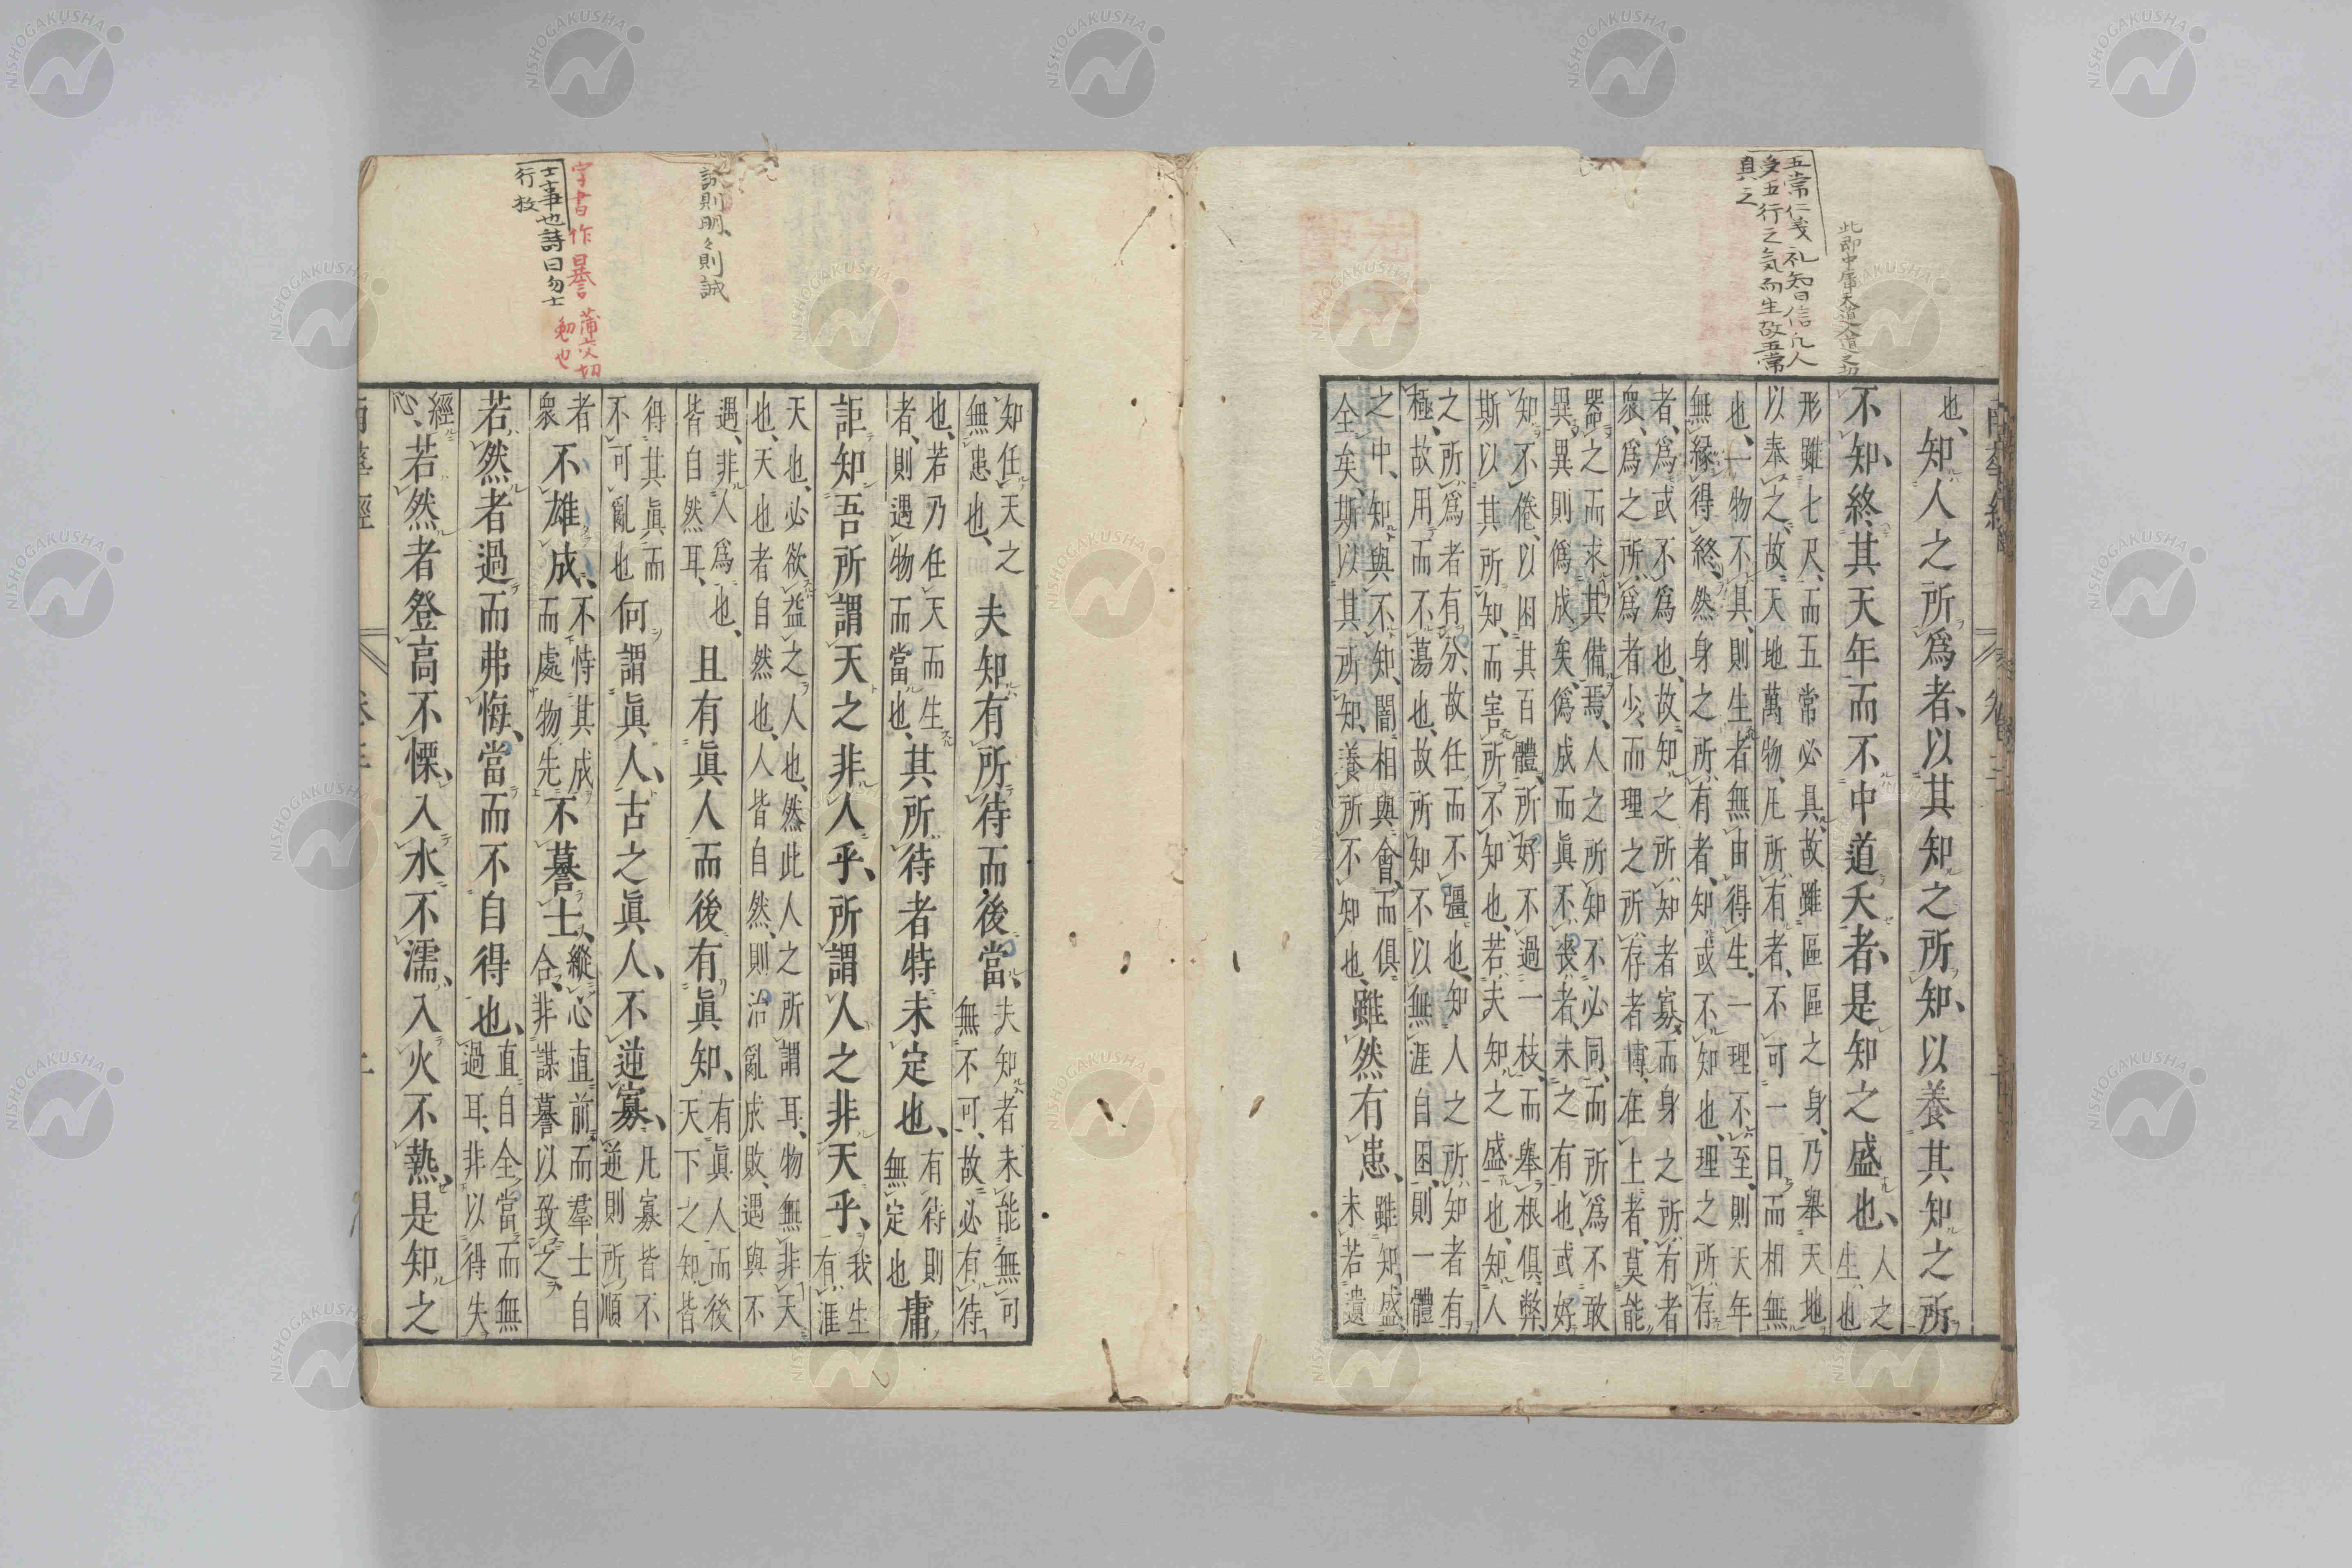 此即中庸天道人道之
五常仁義礼智信凡人
受五行之気而生故五常
具之
也、知人之所爲者、以其知之所知、以養其知之所
不知、終其天年而不中道夭者、是知之盛也、人之
生也
形雖七尺、而五常必具、故雖區區之身、乃舉天地
以奉之、故天地萬物、凡所有者、不可一日而相無
也、一物不具、則生者無由得生、一理不至、則天年
無緣得終、然身之所有者、知或不知也、理之所存
者、爲或不爲也、故知之所知者寡、而身之所有者
衆、爲之所爲者少、而理之所存者博、在上者、莫能
器之而求其備焉、人之所知不必同、而所爲不敢
異、異則僞成矣、僞成而眞不喪者、未之有也、或好
知不倦、以困其百體、所好不過一枝、而舉根俱弊
斯以其所知、而害所不知也、若夫知之盛也、知人
之所爲者有分、故任而不彊也、知人之所知者有
極、故用而不蕩也、故所知不以無涯自困、則一體
之中、知與不知、闇相與會、而俱
全矣、斯以其所知、養所不知也、
雖然有患、
雖知盛、
未若遺
則明、々則誠
字書作謩 蒲交切
勉也
士事也詩曰勿士
行枚
知任天之
無患也、
夫知有所待而後當、
夫知者未能無可
無不可、故必有待、
也、若乃任天而生
者、則遇物而當也、
其所待者特未定也、
有待則
無定也
庸
詎知吾所謂天之非人乎、所謂人之非天乎、
我生
有涯
天也、必欲益之人也、然此人之所謂耳、物無非天
也、天也者自然也、人皆自然、則治亂成敗、遇與不
遇、非人爲也、
皆自然耳、
且有眞人而後有眞知、
有眞人而後
天下之知皆
得其眞而
不可亂也
何謂眞人、古之眞人、不逆寡、
凡寡皆不
逆則所順
者
衆
不雄成、
不恃其成
而處物先
不謩士、
縱心直前而羣士自
合、非謀謩以致之、
若然者過而弗悔、當而不自得也、
直自全當而無
過耳、非以得失
經
心、
若然者登高不慄、入水不濡、入火不熱、是知之